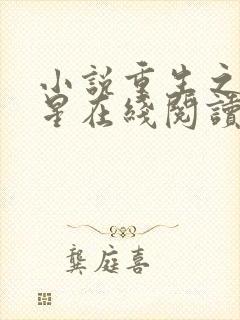 小説重生之
星在綫閱讀
龔庭喜